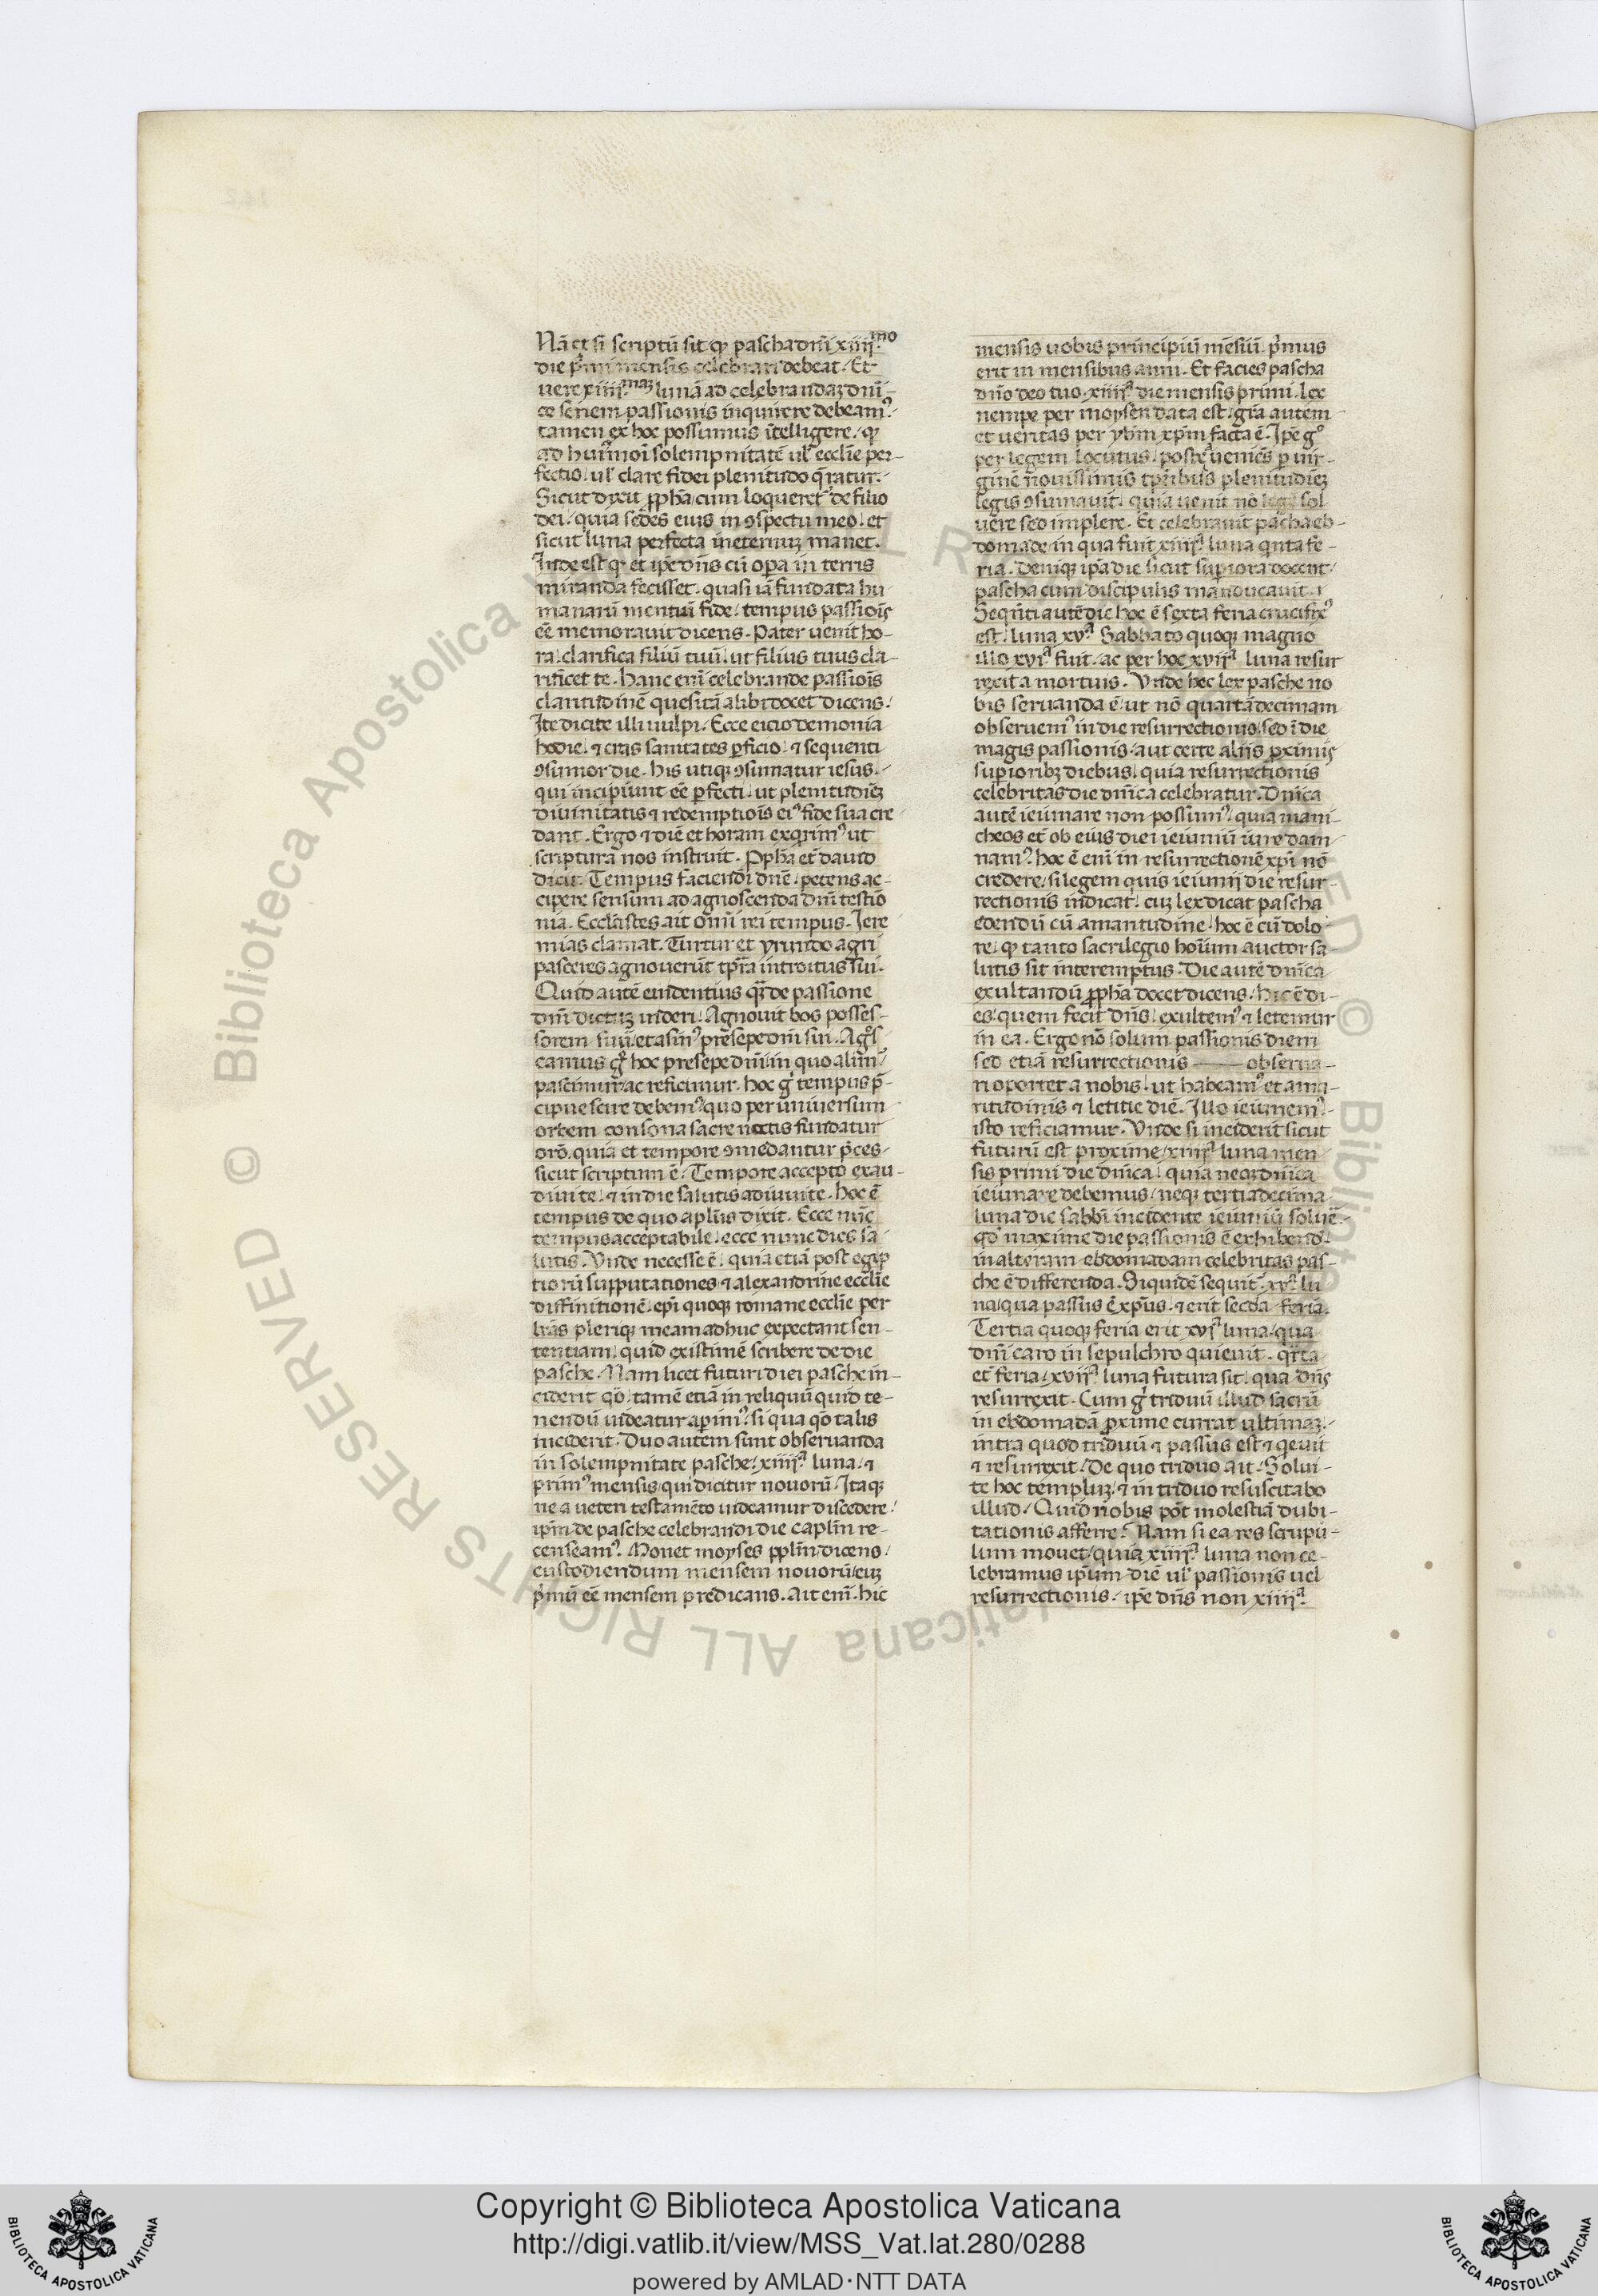 Nā et si scriptū sit ꝙ pascha dn̄i xiiij.mo
die p̄mi mensis celebrari debeat. Et
uere xiiij.maꝫ lunā ad celebrandaꝫ dn̄i-
ce seriem passionis inquirere debeam᾽.
tamen ex hoc possumus ītelligere. ꝙ
ad hui᾽moī solempnitatē ul᾽ ecclīe per-
fectio. ul᾽ clare fidei plenitudo q̄ratur.
Sicut dyxit ꝓpha cum loqueret᾽ de filio
dei. quia sedes eius in ꝯspectu meo. et
sicut luna perfecta in eternuꝫ manet.
Inde est ꝙ et ip̄e dn̄s cū oꝑa in terris
miranda fecisset. quasi iā fundata hu
manarū mentiū fide. tempus passioīs
eē memorauit dicens. Pater uenit ho-
ra. clarifica filiū tuū. ut filius tuus cla-
rificet te. Hanc enī celebrande passioīs
claritudinē quesitā alibi docet dicens.
Ite dicite illi uulpi. Ecce eicio demonia
hodie. ⁊ cras sanitates ꝑficio. ⁊ sequenti
ꝯsumor die. His utiqꝫ ꝯsumatur iesus.
qui incipiunt eē ꝑfecti. ut plenitudinē
diuinitatis ⁊ redemptioīs ei᾽ fide sua cre
dant. Ergo ⁊ diē et horam exq̄rim᾽ ut
scriptura nos instruit. Ꝓpha et̄ dauid
dicit. Tempus faciendi dn̄e. petens ac-
cipere sensum ad agnoscenda dn̄i testio
nia. Ecclāstes ait om̄i rei tempus. Iere
mias clamat. Turtur et yrundo agri
passeres agnouerūt tp̄ra introitus sui.
Quid autē euidentius q̄̄ de passione
dn̄i dictuꝫ uideri. Agnouit bos posses-
sorem suū. et asin᾽ presepe dn̄i sui. Agōs
camus gͦ hoc presepe dn̄i. in quo alim᾽
pascimur. ac reficimur. Hoc gͦ tempus p̄-
cipue scire debem᾽. quo per uniuersum
orbem consona sacre noctis fundatur
orō. quia et tempore ꝯmēdantur p̄ces.
sicut scriptum ē. Tempore accepto exau-
diui te. ⁊ in die salutis adiuui te. Hoc ē
tempus de quo apl̄us dixit. Ecce nūc
tempus acceptabile. ecce nunc dies sa
lutis. Vnde necesse ē. quia etiā post egip
tiorū supputationes ⁊ alexandrine ecclīe
diffinitionē. epī quoqꝫ romane ecclīe per
lrās pleriqꝫ meam adhuc expectant sen-
tentiam. quid existimē scribere de die
pasche. Nam licet futuri diei pasche in-
ciderit qō. tamē etiā in reliquū quid te-
nendū uideatur aperim᾽. si qua qō talis
inciderit. Duo autem sunt obseruanda
in solempnitate pasche. xiiij.ͣ luna. ⁊
prim᾽ mensis. qui dicitur nouorū. Itaqꝫ
ne a ueteri testamēto uideamur discedere.
ip̄m de pasche celebrandi die caplīm re-
censeam᾽. Monet moyses pplīm dicens.
custodiendum mensem nouorū. euꝫ
p̄mū eē mensem predicans. Ait enī. Hic
mensis uobis principiū mēsiū. p̄mus
erit in mensibus anni. Et facies pascha
dn̄o deo tuo. xiiij.ͣ die mensis primi. Lex
nempe per moysen data est. gr̄a autem
et ueritas per yhm̄ xp̄m facta ē. Ip̄e gͦ
per legem locutus. postea ueniēs ꝑ uir-
ginē nouissimis tp̄ribus plenitudinē
legis ꝯsumauit. quia uenit nō lege sol
uere sed implere. Et celebrauit pascha eb-
domade in qua fuit xiiij.ͣ luna q̄nta fe-
ria. Deniqꝫ ip̄a die sicut suꝑiora docent.
pascha cum discipulis manducauit.
Seq̄nti autē die hoc ē sexta feria crucifix᾽
est. luna xv.ͣ Sabbato quoqꝫ magno
illo xvi.ͣ fuit. ac per hoc xvij.ͣ luna resur
rexit a mortuis. Vnde hec lex pasche no
bis seruanda ē. ut nō quartādecimam
obseruem᾽ in die resurrectionis. sed ī die
magis passionis. aut certe alijs ꝓximis
suꝑioribꝫ diebus. quia resurrectionis
celebritas die dn̄ica celebratur. Dn̄ica
autē ieiunare non possum᾽. quia mani-
cheos et̄ ob eius diei ieiuniū iure dam
nam᾽. hoc ē enī in resurrectionē xp̄i nō
credere. si legem quis ieiunij die resur-
rectionis indicat. cuꝫ lex dicat pascha
edendū cū amaritudine. hoc ē cū dolo
re. ꝙ tanto sacrilegio hoīum auctor sa-
lutis sit interemptus. Die autē dn̄ica
exultandū ꝓpha docet dicens. Hic ē di-
es quem fecit dn̄s. exultem᾽ ⁊ letemur
in ea. Ergo nō solum passionis diem
sed etiā resurrectionis —— obserua-
ri oportet a nobis. ut habeam᾽ et ama-
ritudinis ⁊ letitie diē. Illo ieiunem᾽.
isto reficiamur. Vnde si inciderit sicut
futurū est proxime. xiiij.ͣ luna men-
sis primi die dn̄ica. quia neqꝫ dn̄ica
ieiunare debemus. neqꝫ tertiadecima
luna die sabbi incidente ieiuniū soluē.
qd̄ maxime die passionis ē exhibend᾽.
in alteram ebdomadam celebritas pas-
che ē differenda. Siquidē sequit᾽. xv.ͣ lu
na. qua passus ē xp̄us. ⁊ erit secda feria.
Tertia quoqꝫ feria erit xvi.ͣ luna. qua
dn̄i caro in sepulchro quieuit. q̄rta
et̄ feria. xvij.ͣ luna futura sit. qua dn̄s
resurrexit. Cum gͦ triduū illud sacrū
in ebdomadā ꝓxime currat ultimaꝫ.
intra quod triduū ⁊ passus est ⁊ q̄euit
⁊ resurrexit. De quo triduo ait. Solui-
te hoc templuꝫ. ⁊ in triduo resuscitabo
illud. Quid nobis pōt molestiā dubi-
tationis afferre? Nam si ea res scrupu-
lum mouet. quia xiiij.ͣ luna non ce-
lebramus ip̄um diē ul᾽ passionis uel
resurrectionis. ip̄e dn̄s non xiiij.ͣ
© Biblioteca Apostolica Vaticana ALL RIGHTS RESERVED
Copyright © Biblioteca Apostolica Vaticana
http://digi.vatlib.it/view/MSS_Vat.lat.280/0288
powered by AMLAD·NTT DATA
BIBLIOTECA APOSTOLICA VATICANA
BIBLIOTECA APOSTOLICA VATICANA